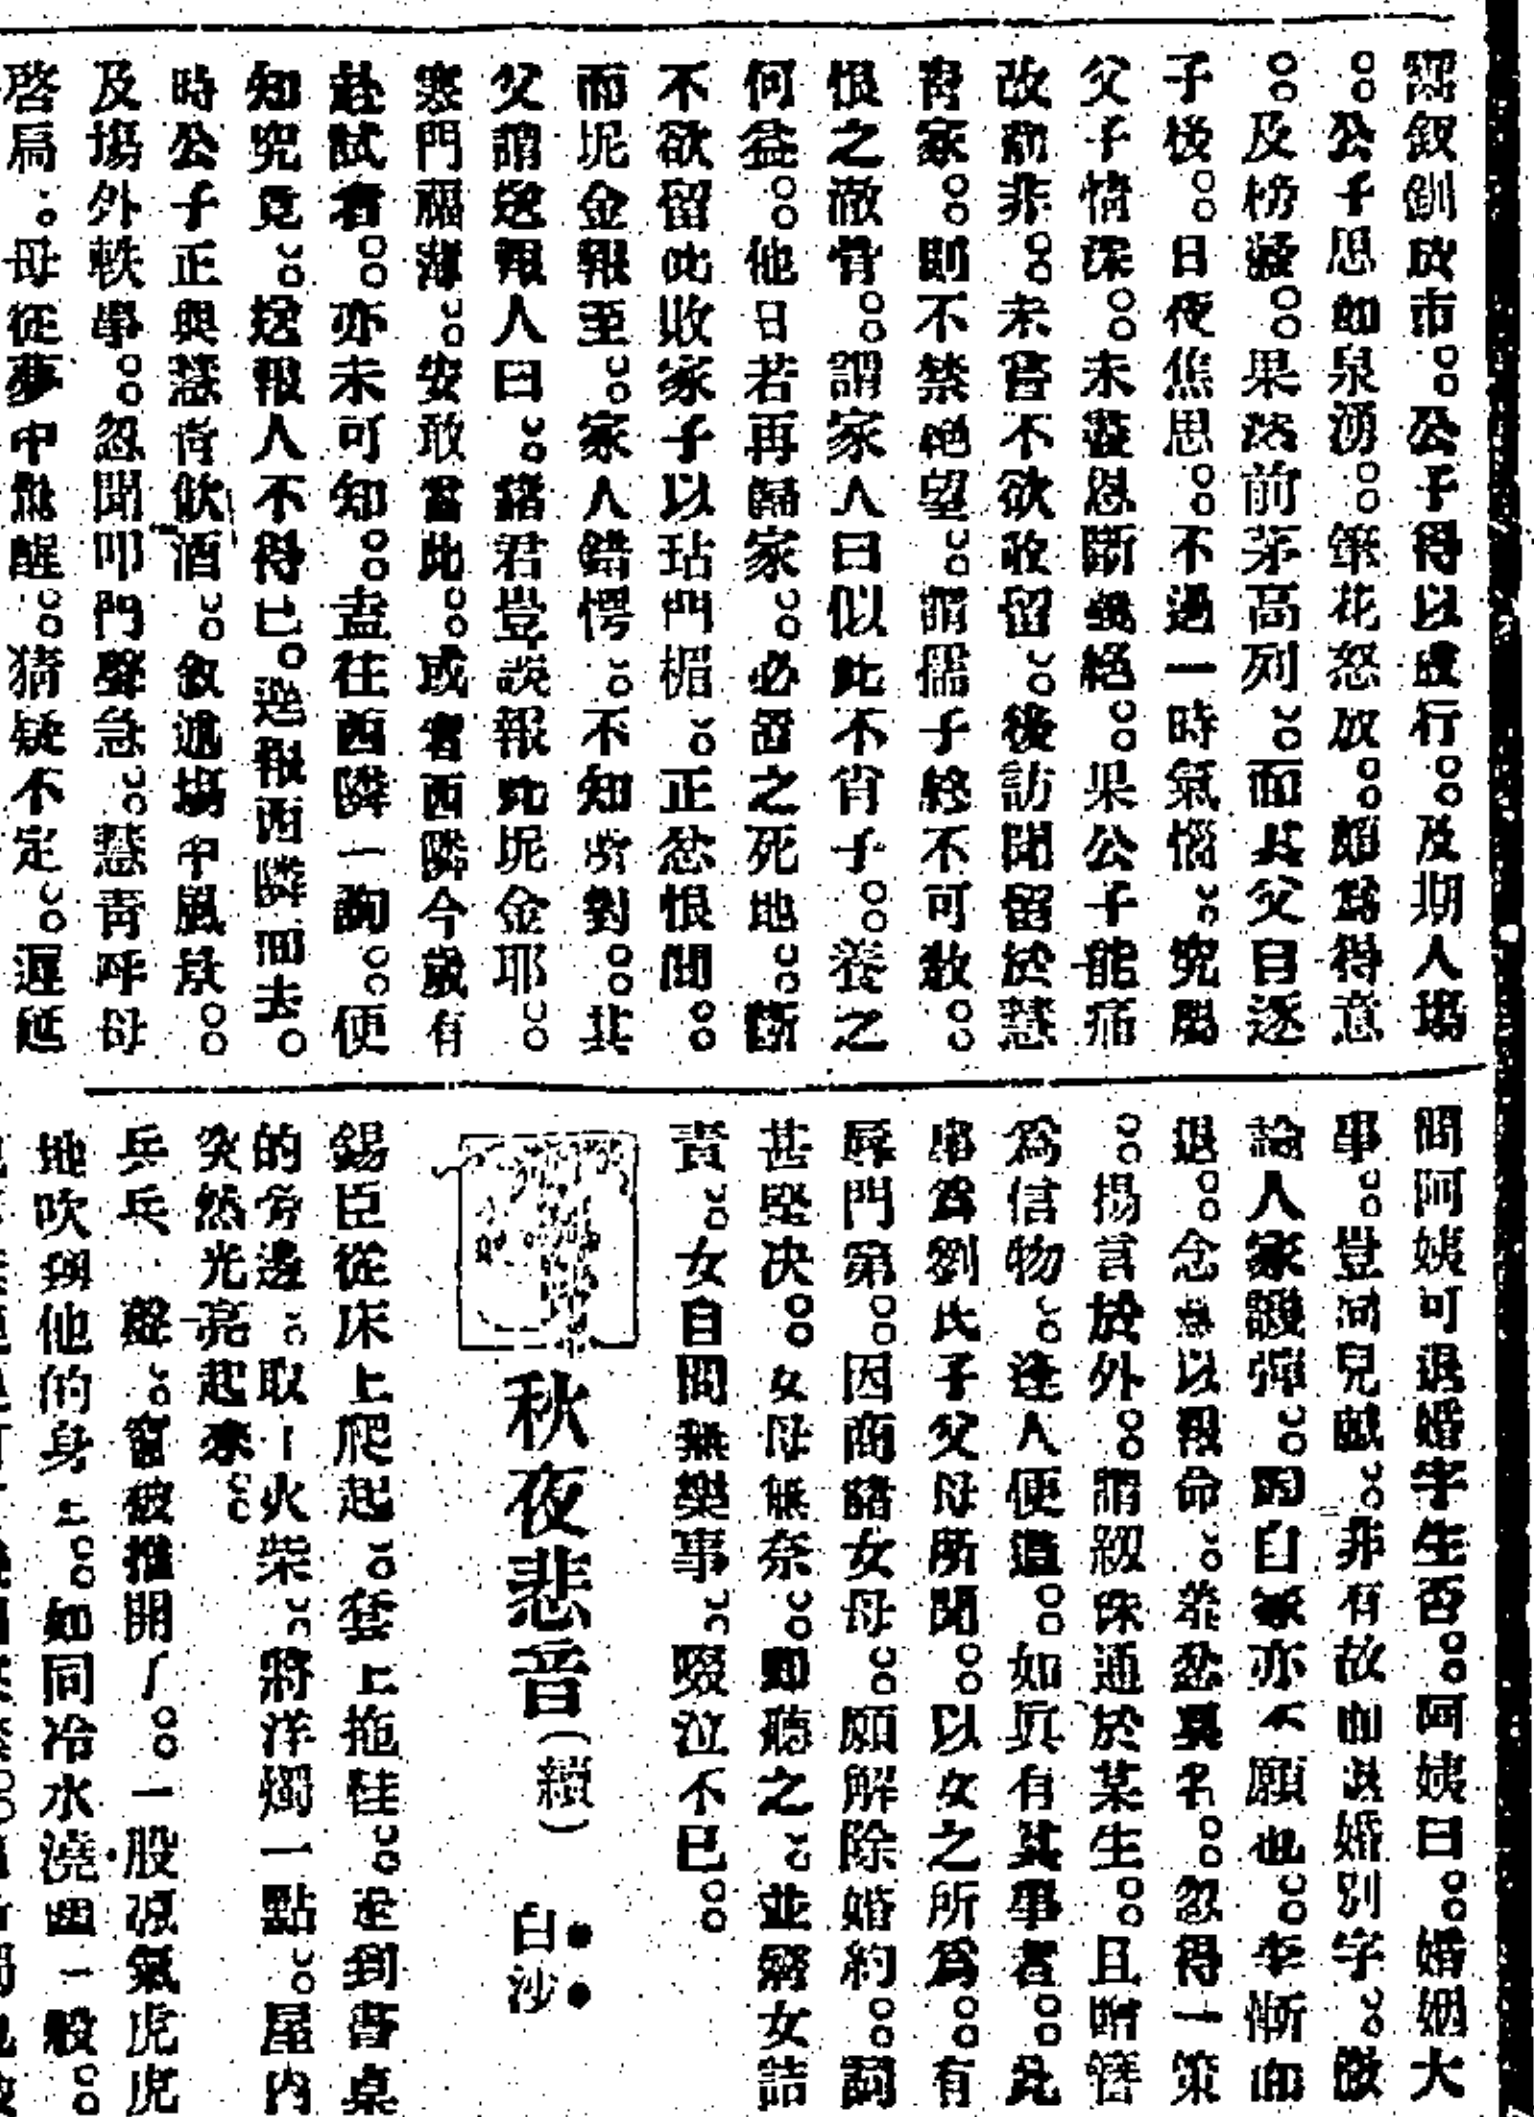 釵釧放市。。公子得以成行。。及期人塲
。。公子思如泉湧。。筆花怒放。。頗爲得意
。。及榜發。。果然前茅高列。。而其父自逐
子後。。日夜焦思。。不過一時氣惱。。究屬
父子情深。。未盡恩斷義絕。。果公子能痛
改前非。。未嘗不欲收留。。後訪聞留於慧
靑家。。則不禁絕望。。謂儒子終不可敎。。
恨之澈骨。。謂家人曰似此不肖子。。養之
何益。。他日若再歸家。。必置之死地。。斷
不欲留此敗家子以玷門楣。。正忿恨間。。
而坭金報至。。家人錯愕。。不知所對。。其
父謂送報人曰。。諸君豈誤報此坭金耶。。
寒門福薄。。安敢當此。。或者西隣今歲有
赴試者。。亦未可知。。盍往西隣一詢。。便
知究竟。。送報人不得已。迯報西隣而去。
時公子正與慧靑飮酒。。敘述塲中風景。。
及塲外軼事。。忽聞叩門聲急。。慧靑呼母
啓扃。。母從夢中驚醒。。猜疑不定。。遲延
問阿姨可退婚字生否。。阿姨曰。。婚姻大
事。。豈同兒戲。。非有故而退婚別字。。微
論人家議彈。。問自家亦不願也。。李慚而
退。。念無以報命。。恭忿異名。。忽得一策
。。揚言於外。。謂𠕇珠通於某生。。且贈簪
爲信物。。逢人便道。。如眞有其事者。。此
事爲劉氏子父母所聞。。以女之所爲。。有
辱門第。。因商諸女母。。願解除婚約。。詞
甚堅决。。女母無奈。。卽聽之。。並將女詰
責。。女自問無樂事。。啜泣不已。。
秋夜悲音（續）　白沙
錫臣從床上爬起。。套上拖鞋。。走到書桌
的旁邊。。取一火柴。。將洋燭一點。。屋內
突然光亮起來。。
乒乓一聲。。窗被推開了。。一股强氣虎虎
地吹到他的身上。。如同冷水澆面一般。。